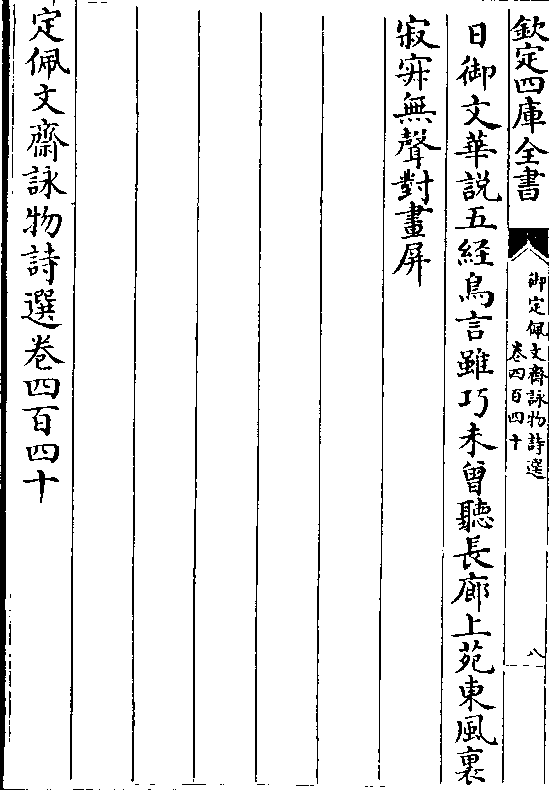 欽定四庫全書
御定佩文齋詠物詩選
卷四百四十
八
日御文華説五經鳥言雖巧未曾聽長廊上苑東風裏
寂寞無聲對畫屏
定佩文齋詠物詩選卷四百四十